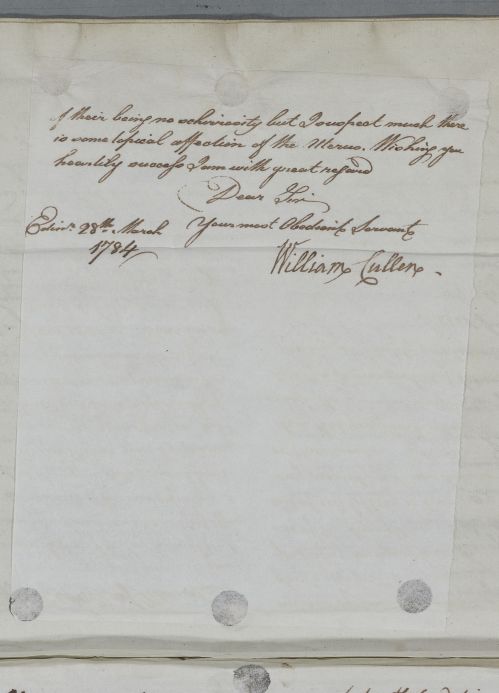 of their being no schirrosity but I suspect much there
is some topical affection of the Uterus. Wishing you
heartily success I am with great regard
Dear Sir
Edinr. 28th. March Your most Obedient Servant
1784
William Cullen.